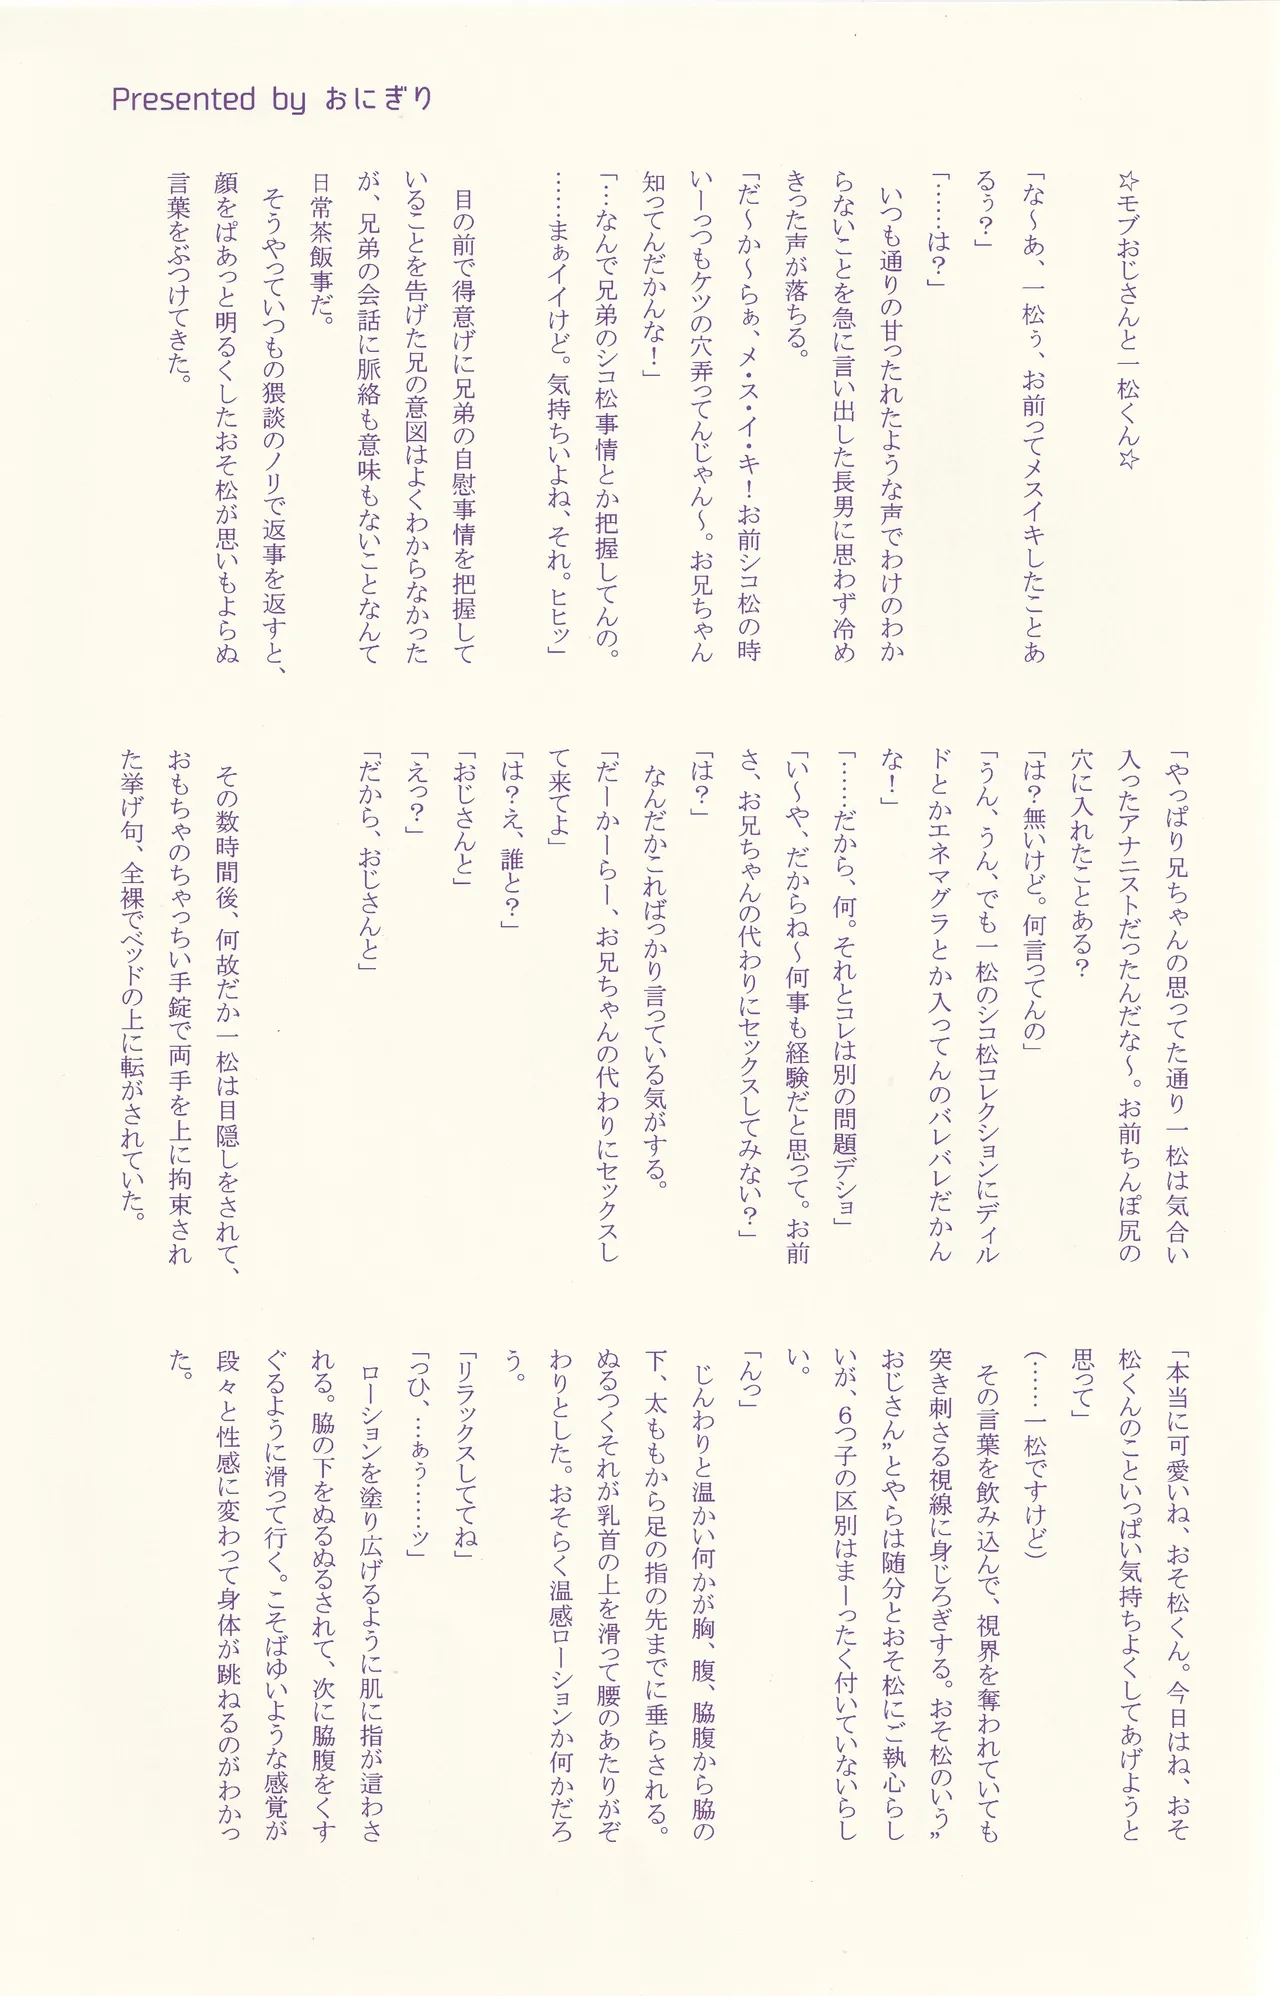 Presented by おにぎり
☆モブおじさんと一松くん☆
「な〜あ、一松ぅ、お前ってメスイキしたことあ
るぅ？」
「……は？」
いつも通りの甘ったれたような声でわけのわか
らないことを急に言い出した長男に思わず冷め
きった声が落ちる。
「だ〜か〜らぁ、メ・ス・イ・キ！お前シコ松の時
いーっつもケツの穴弄ってんじゃん〜。お兄ちゃん
知ってんだかんな！」
「…なんで兄弟のシコ松事情とか把握してんの。
……まぁイイけど。気持ちいよね、それ。ヒヒッ」
目の前で得意げに兄弟の自慰事情を把握して
いることを告げた兄の意図はよくわからなかった
が、兄弟の会話に脈絡も意味もないことなんて
日常茶飯事だ。
そうやっていつもの猥談のノリで返事を返すと、
顔をぱあっと明るくしたおそ松が思いもよらぬ
言葉をぶつけてきた。
「やっぱり兄ちゃんの思ってた通り一松は気合い
入ったアナニストだったんだな〜。お前ちんぽ尻の
穴に入れたことある？
「は？無いけど。何言ってんの」
「うん、うん、でも一松のシコ松コレクションにディル
ドとかエネマグラとか入ってんのバレバレだかん
な！」
「……だから、何。それとコレは別の問題デショ」
「い〜や、だからね〜何事も経験だと思って。お前
さ、お兄ちゃんの代わりにセックスしてみない？」
「は？」
なんだかこればっかり言っている気がする。
「だーかーらー、お兄ちゃんの代わりにセックスし
て来てよ」
「は？え、誰と？」
「おじさんと」
「えっ？」
「だから、おじさんと」
その数時間後、何故だか一松は目隠しをされて、
おもちゃのちゃっちい手錠で両手を上に拘束され
た挙げ句、全裸でベッドの上に転がされていた。
「本当に可愛いね、おそ松くん。今日はね、おそ
松くんのこといっぱい気持ちよくしてあげようと
思って」
(……一松ですけど)
その言葉を飲み込んで、視界を奪われていても
突き刺さる視線に身じろぎする。おそ松のいう”
おじさん”とやらは随分とおそ松にご執心らし
いが、6つ子の区別はまーったく付いていないらし
い。
「んっ」
じんわりと温かい何かが胸、腹、脇腹から脇の
下、太ももから足の指の先までに垂らされる。
ぬるつくそれが乳首の上を滑って腰のあたりがぞ
わりとした。おそらく温感ローションか何かだろ
う。
「リラックスしててね」
「っひ、…ぁぅ……ッ」
ローションを塗り広げるように肌に指が這わさ
れる。脇の下をぬるぬるされて、次に脇腹をくす
ぐるように滑って行く。こそばゆいような感覚が
段々と性感に変わって身体が跳ねるのがわかっ
た。